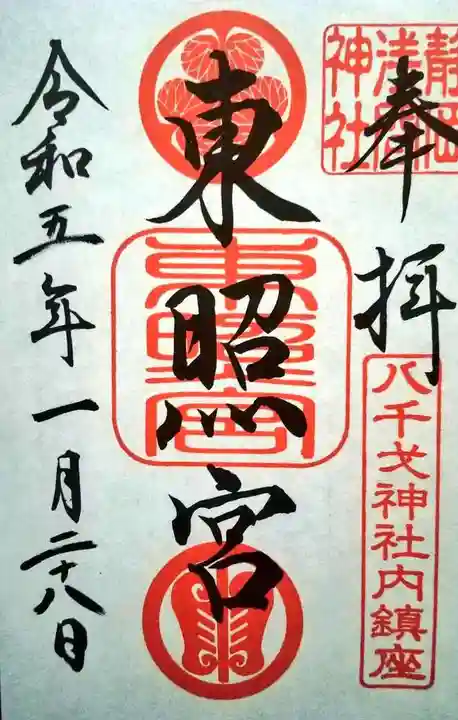 奉拝
静岡浅間神社
八千戈神社内鎮座
東照宮
東照宮
令和五年一月二十八日